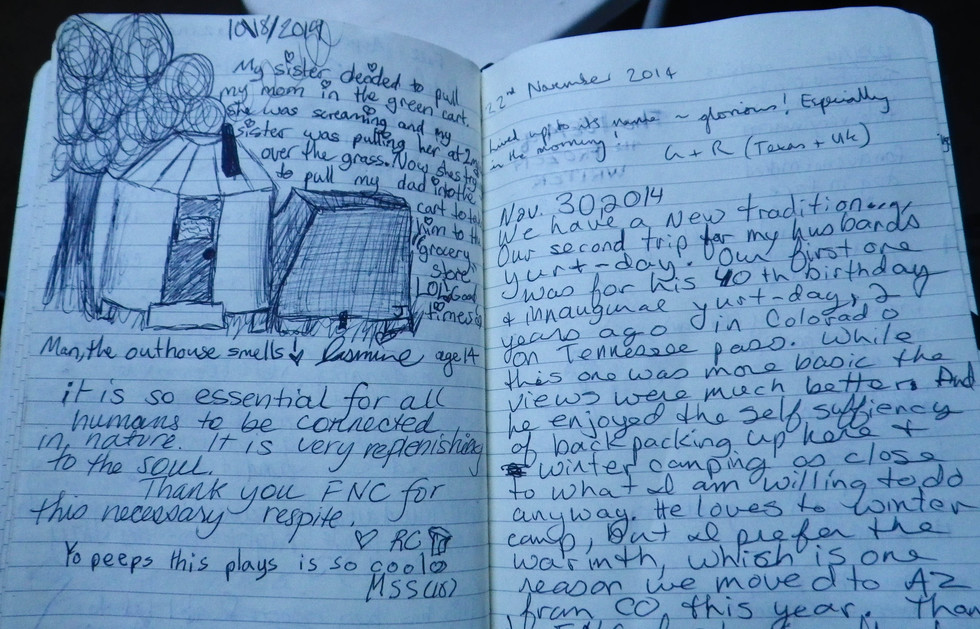 10/18/2014
My sister decided to pull
my mom in the green cart.
She was screaming and my
sister was pulling her at 2mph
over the grass. Now shes try
to pull my dad into the
cart to take
him to the
grocery
store
LOL Good
times
Man, the outhouse smells! Jasmine age 14
it is so essential for all
humans to be connected
in nature. It is very replenishing
to the soul.
Thank you FNC for
this necessary respite.
♡ RC
Yo peeps this plays is so cool
MSS (10)
22nd November 2014
Lived up to its name ~ glorious! Especially
in the morning!
G + R (Texas + UK)
Nov. 30 2014
We have a New tradition
Our second trip for my husbands
yurt-day. Our first one
was for his 40th birthday
+ inaugural yurt-day, 2
years ago in Colorado
on Tennessee pass. While
this one was more basic the
views were much better. And
he enjoyed the self suffiency
of backpacking up here +
winter camping as close
to what I am willing to do
anyway. He loves to winter
camp, but I prefer the
warmth, which is one
reason we moved to AZ
from CO, this year. Than